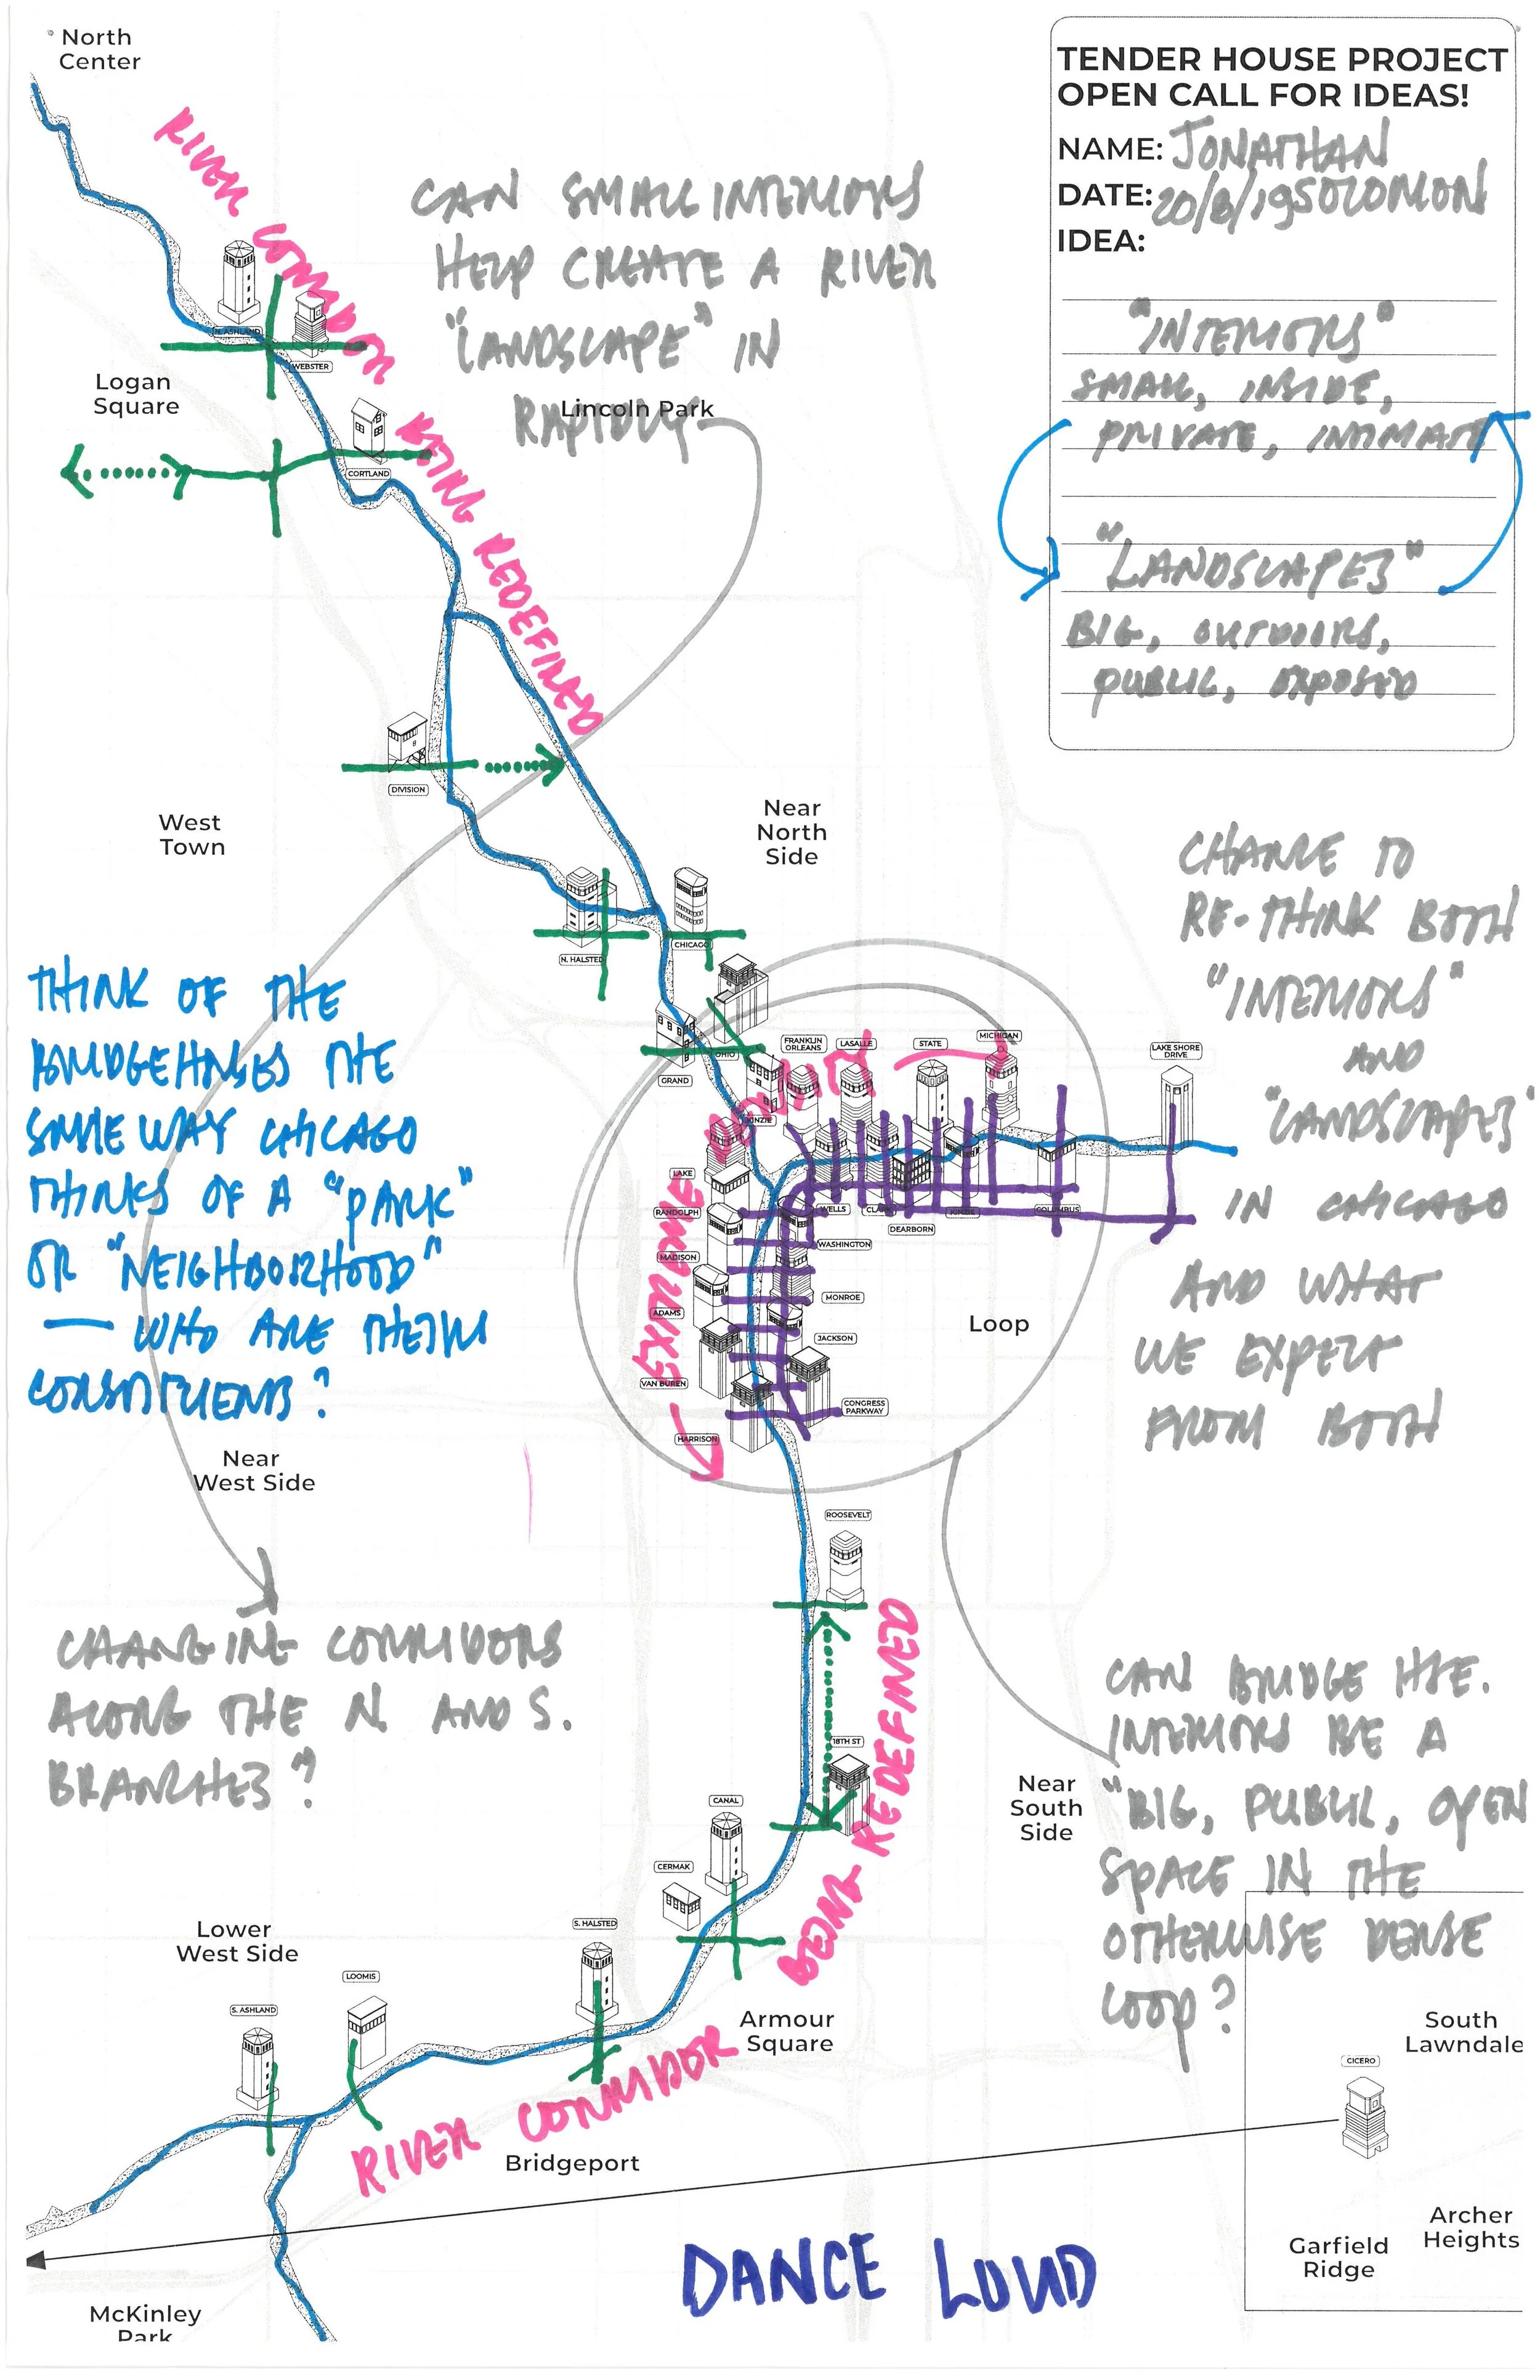 North
Center
TENDER HOUSE PROJECT
OPEN CALL FOR IDEAS!
NAME: JONATHAN
SOLOMON
DATE: 20/8/19
IDEA:
"INTERIORS"
SMALL, INSIDE,
PRIVATE, INTIMATE
"LANDSCAPES"
BIG, OUTDOORS,
PUBLIC, EXPOSED
RIVER CORRIDOR BEING REDEFINED
CAN SMALL INTERIORS
HELP CREATE A RIVER
"LANDSCAPE" IN
RAPIDLY
Lincoln Park
N. ASHLAND
WEBSTER
Logan
Square
CORTLAND
DIVISION
West
Town
Near
North
Side
CHANCE TO
RE-THINK BOTH
"INTERIORS"
AND
"LANDSCAPES"
IN CHICAGO
AND WHAT
WE EXPECT
FROM BOTH
N. HALSTED
CHICAGO
THINK OF THE
BRIDGEHOUSES THE
SAME WAY CHICAGO
THINKS OF A "PARK"
OR "NEIGHBORHOOD"
— WHO ARE THEIR
CONSTITUENTS?
GRAND
OHIO
KINZIE
FRANKLIN
ORLEANS
LASALLE
STATE
MICHIGAN
LAKE SHORE
DRIVE
LAKE
RANDOLPH
MADISON
ADAMS
VAN BUREN
HARRISON
WELLS
CLARK
DEARBORN
COLUMBUS
WASHINGTON
MONROE
JACKSON
CONGRESS
PARKWAY
Loop
Near
West Side
ROOSEVELT
CHANGING CORRIDORS
ALONG THE N. AND S.
BRANCHES?
18TH ST
BEING REDEFINED
CAN BRIDGE HSE.
INTERIORS BE A
"BIG, PUBLIC, OPEN
SPACE IN THE
OTHERWISE DENSE
LOOP?
Near
South
Side
CANAL
CERMAK
S. HALSTED
Lower
West Side
LOOMIS
S. ASHLAND
Armour
Square
RIVER CORRIDOR
Bridgeport
South
Lawndale
CICERO
Archer
Heights
Garfield
Ridge
DANCE LOUD
McKinley
Park